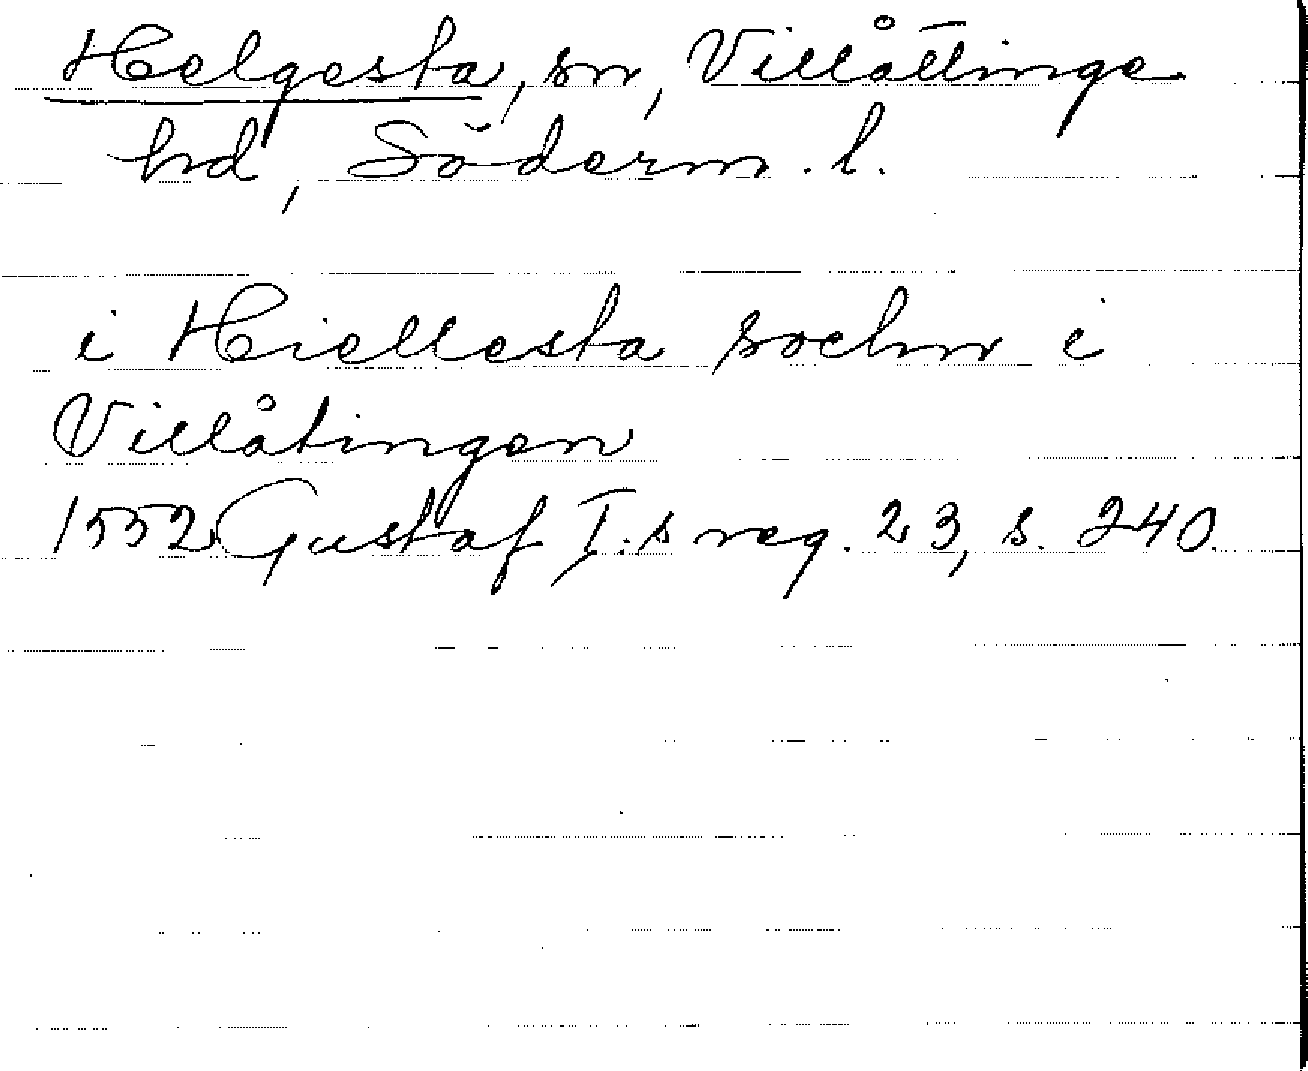 Helgesta, sn, Villåttinge
hd, Söderm. l.
i Hiellesta sochnn i
Villåtingen
1552 Gustaf I:s reg. 23, s. 240.